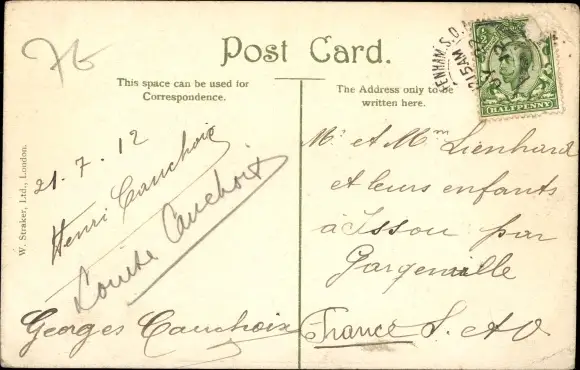 76
Post Card.
This space can be used for
Correspondence.
The Address only to be
written here.
W. Straker, Ltd., London.
21. 7. 12
Henri Cauchoix
Louise Cauchoix
Georges Cauchoix
Mr et Mme Lienhard
et leurs enfants
à Issou par
Gargenville
France S. et O
ENHAM. S.O.
215AM
JY 22
12
HALFPENNY